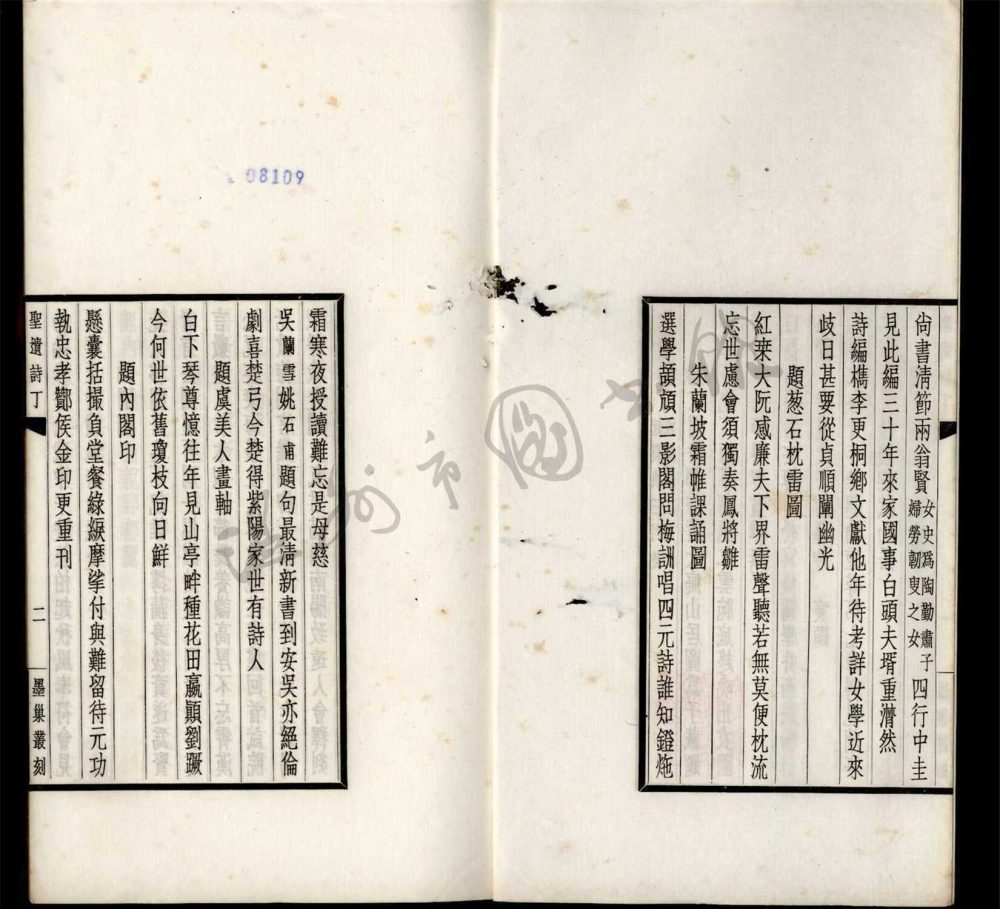 尙書淸節兩翁賢女史爲陶勤肅子婦勞韌叟之女四行中圭
見此編三十年來家國事白頭夫壻重潸然
詩編檇李更桐鄉文獻他年待考詳女學近來
歧日甚要從貞順闡幽光
題葱石枕雷圖
紅桒大阮感廉夫下界雷聲聽若無莫便枕流
忘世慮會須獨奏鳳將雛
朱蘭坡霜帷課誦圖
選學頡頏三影閣問梅訓唱四元詩誰知鐙灺
霜寒夜授讀難忘是母慈
吳蘭雪姚石甫題句最淸新書到安吳亦絕倫
劇喜楚弓今楚得紫陽家世有詩人
題虞美人畫軸
白下琴尊憶往年見山亭畔種花田嬴顚劉蹶
今何世依舊瓊枝向日鮮
題內閣印
懸囊括撮負堂餐綠綟摩挲付與難留待元功
執忠孝酇侯金印更重刊
聖遺詩丁
二
墨巢叢刻
08109